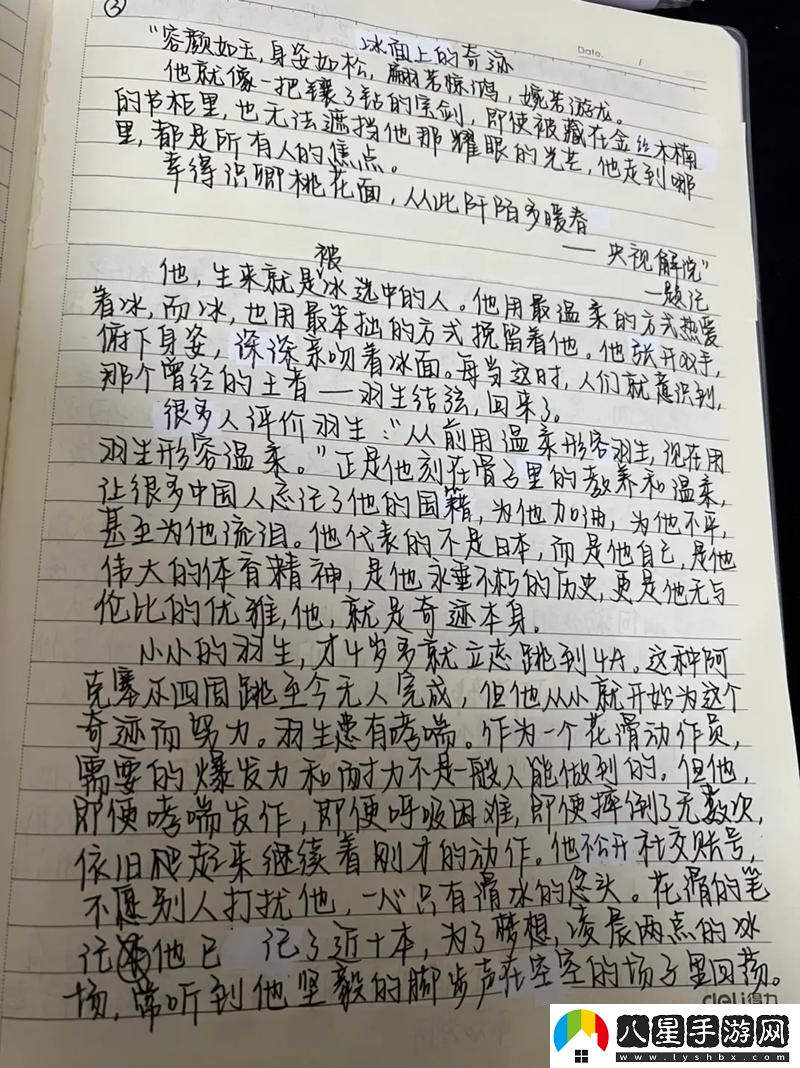 ③
冰面上的奇迹
Date.        /
"容颜如玉,身姿如松,翩若惊鸿,婉若游龙。
他就像一把镶了钻的宝剑,即使被藏在金丝木楠
的书柜里,也无法遮挡他那耀眼的光芒,他走到哪
里,都是所有人的焦点。
幸得识卿桃花面,从此阡陌多暖春
——央视解说"
—题记
他,生来就是被冰选中的人。他用最温柔的方式热爱
着冰,而冰,也用最笨拙的方式挽留着他。他张开双手,
俯下身姿,深深亲吻着冰面。每当这时,人们就意识到,
那个曾经的王者——羽生结弦,回来了。
很多人评价羽生:"从前用温柔形容羽生,现在用
羽生形容温柔。"正是他刻在骨子里的教养和温柔,
让很多中国人忘记了他的国籍,为他加油,为他不平,
甚至为他流泪。他代表的不是日本,而是他自己,是他
伟大的体育精神,是他永垂不朽的历史,更是他无与
伦比的优雅,他,就是奇迹本身。
小小的羽生,才4岁多就立志跳到4A。这种阿
克塞尔四周跳至今无人完成,但他从小就开始为这个
奇迹而努力。羽生患有哮喘。作为一个花滑动作员,
需要的爆发力和耐力不是一般人能做到的。但他,
即便哮喘发作,即便呼吸困难,即便摔倒了无数次,
依旧爬起来继续着刚才的动作。他不公开社交账号,
不愿别人打扰他,一心只有滑冰的念头。花滑的笔
记他已 记了近十本,为了梦想,凌晨两点的冰
场,常听到他坚毅的脚步声在空空的场子里回荡。
deli得力
八星手游网
www.lyshbx.com